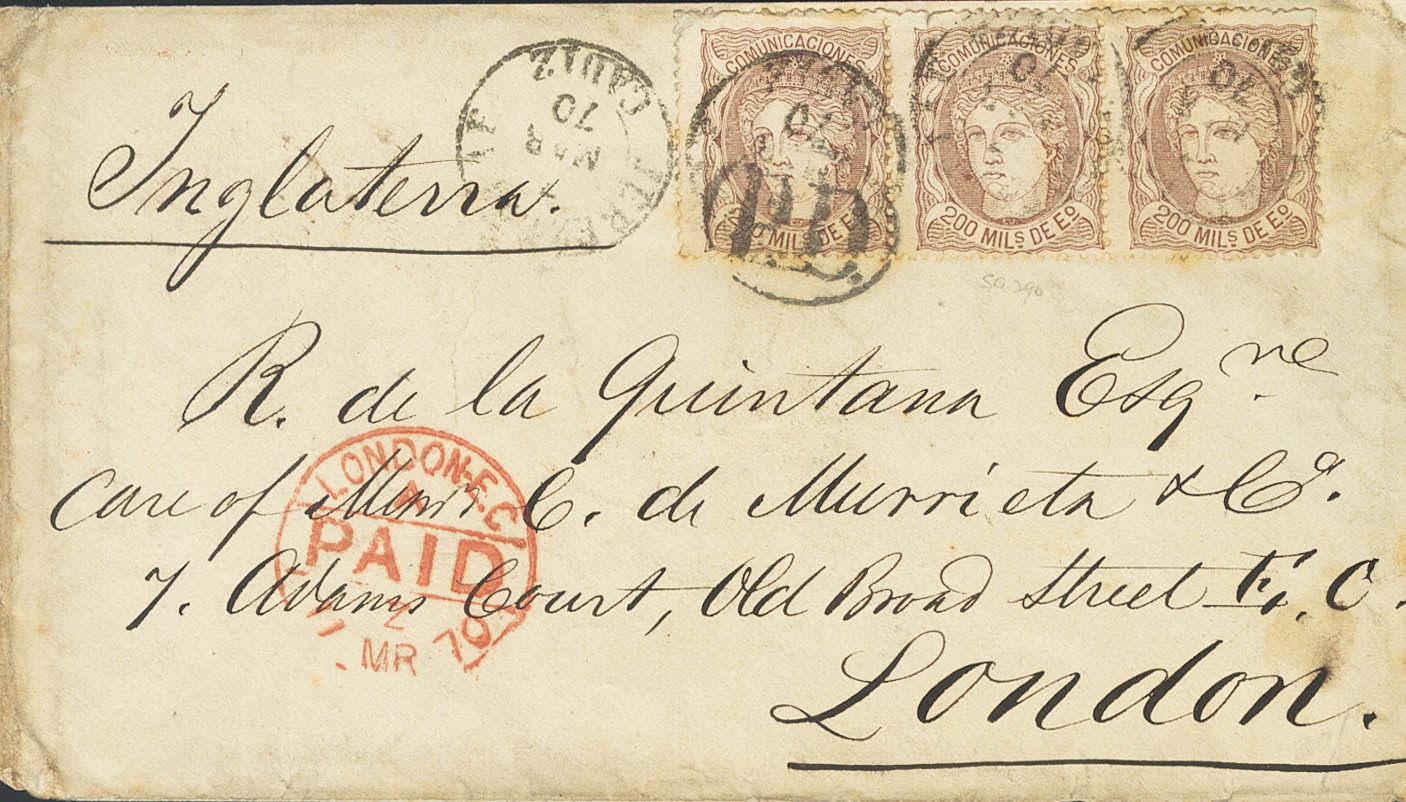 Inglaterra.
CADIZ
70
MAR
COMUNICACIONES
200 MILS DE EO.
COMUNICACIONES
200 MILS DE EO.
COMUNICACIONES
200 MILS DE EO.
P.D.
R. de la Quintana Esqre
Care of Messrs C. de Murrieta & Co.
7. Adams Court, Old Broad Street E. C.
London.
LONDON-E.C
PAID
MR 70